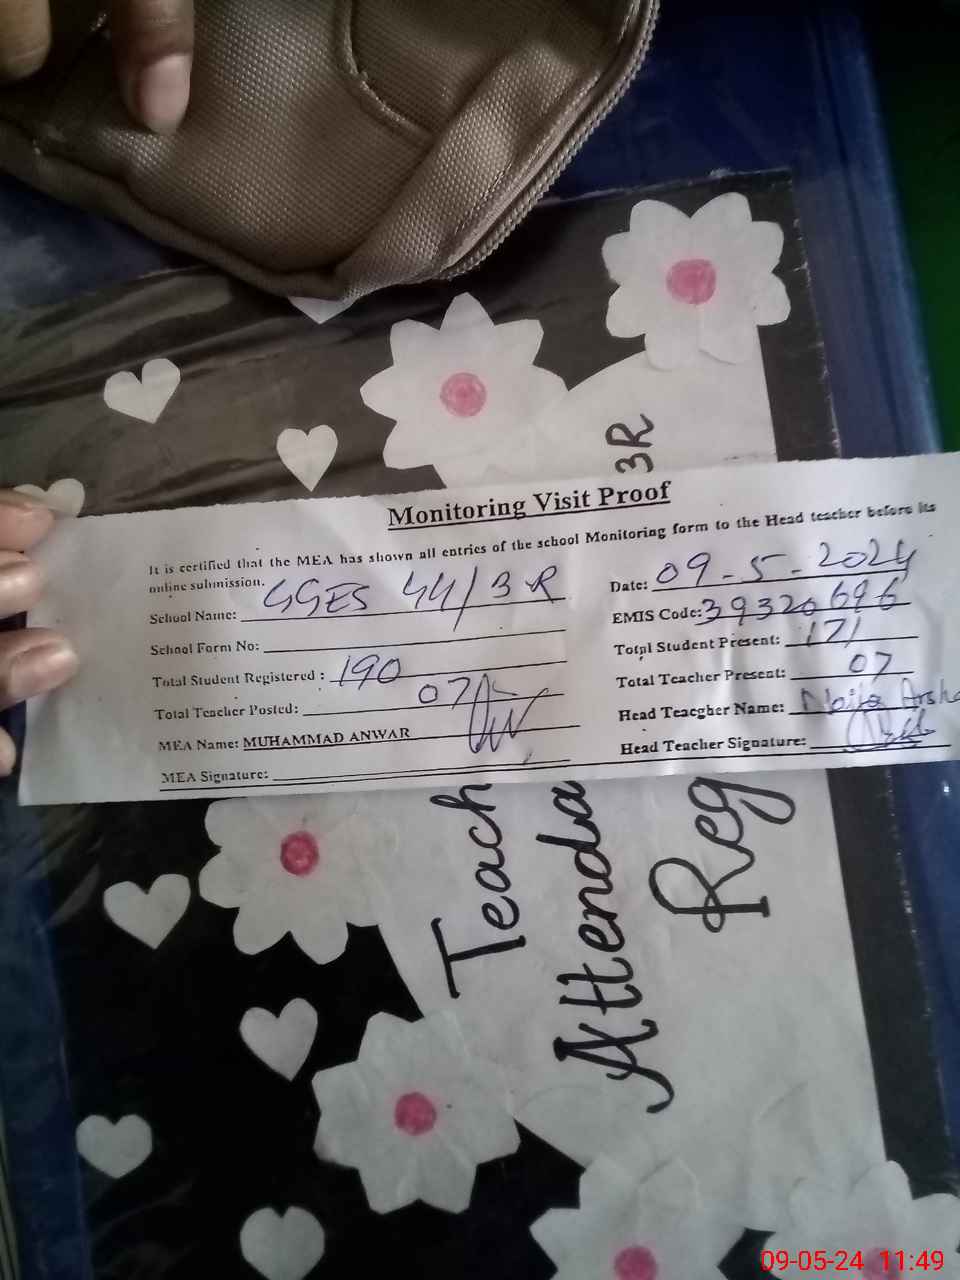 3R
Monitoring Visit Proof
It is certified that the MEA has shown all entries of the school Monitoring form to the Head teacher before its
online submission.
School Name: GGES 44/3R
Date: 09-5-2024
School Form No:
EMIS Code: 39320696
Total Student Registered : 190
Total Student Present: 171
Total Teacher Posted: 07
Total Teacher Present: 07
MEA Name: MUHAMMAD ANWAR
Head Teacgher Name:
MEA Signature:
Head Teacher Signature:
Teach
Attenda
Reg
09-05-24 11:49